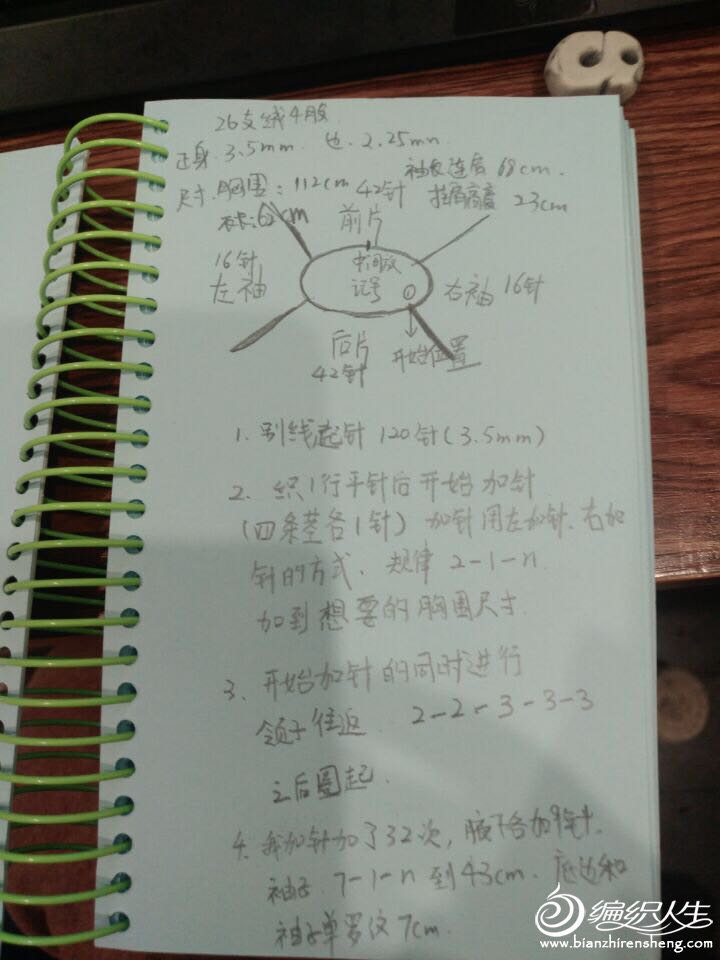 26支绒4股
正身.3.5mm 边.2.25mm
袖长连肩 68cm.
尺寸.胸围:112cm 42针 挂肩 23cm
衣长:62cm 前片
16针
左袖
中间做
记号
右袖 16针
后片
42针
开始位置
1. 别线起针 120针(3.5mm)
2. 织1行平针后开始加针
(四条茎各1针) 加针用左加针.右加
针的方式、规律 2-1-n
加到想要的胸围尺寸.
3. 开始加针的同时进行
领子往返. 2-2-3-3-3
之后圈起.
4. 我加针加了32次, 腋下各加9针.
袖子. 7-1-n 到43cm. 底边和
袖子单罗纹 7cm.
编织人生
www.bianzhirensheng.com